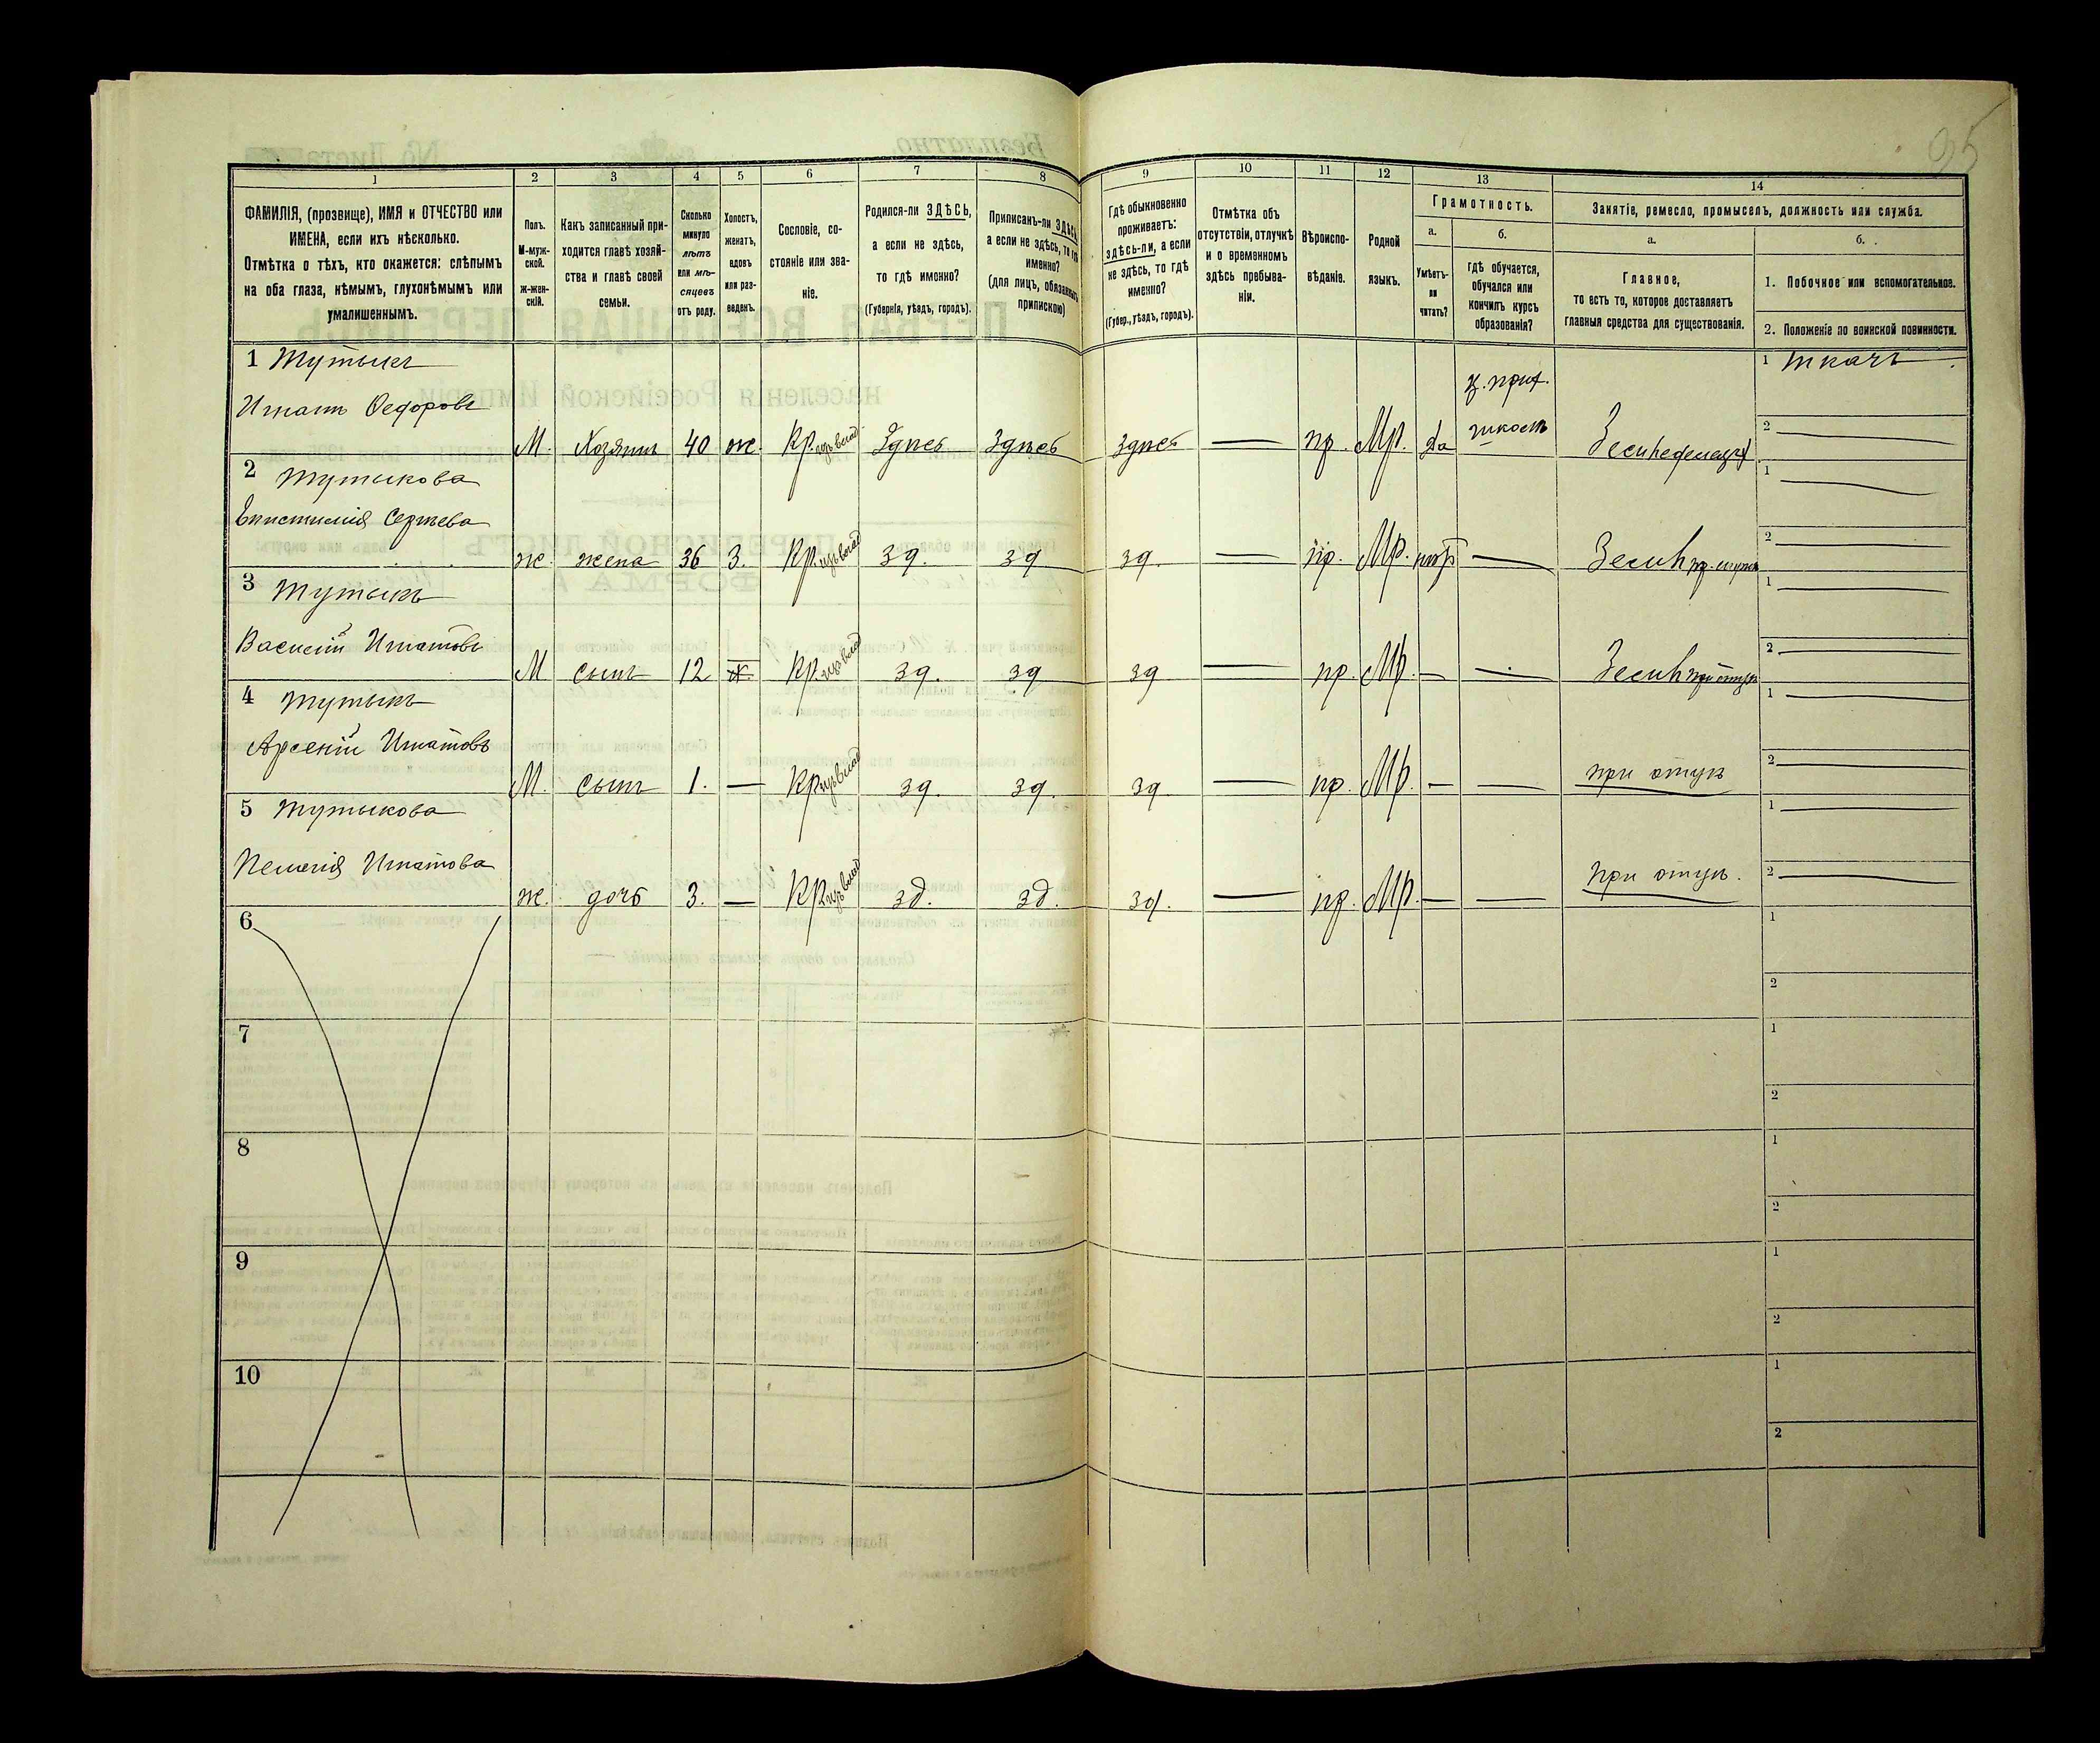 95
1
2
3
4
5
6
7
8
9
10
11
12
13
14
ФАМИЛІЯ, (прозвище), ИМЯ и ОТЧЕСТВО или
ИМЕНА, если ихъ нѣсколько.
Отмѣтка о тѣхъ, кто окажется: слѣпымъ
на оба глаза, нѣмымъ, глухонѣмымъ или
умалишеннымъ.
Полъ.
М-муж-
ской.
Ж-жен-
скій.
Какъ записанный при-
ходится главѣ хозяй-
ства и главѣ своей
семьи.
Сколько
минуло
лѣтъ
или мѣ-
сяцевъ
отъ роду.
Холостъ,
женатъ,
вдовъ
или раз-
веденъ.
Сословіе, со-
стояніе или зва-
ніе.
Родился-ли ЗДѢСЬ,
а если не здѣсь,
то гдѣ именно?
(Губернія, уѣздъ, городъ).
Приписанъ-ли ЗДѢСЬ,
а если не здѣсь, то гдѣ
именно?
(для лицъ, обязанныхъ
припискою)
Гдѣ обыкновенно
проживаетъ:
здѣсь-ли, а если
не здѣсь, то гдѣ
именно?
(Губер., уѣздъ, городъ).
Отмѣтка объ
отсутствіи, отлучкѣ
и о временномъ
здѣсь пребыва-
ніи.
Вѣроиспо-
вѣданіе.
Родной
языкъ.
Грамотность.
а.
Умѣетъ-
ли
читать?
б.
гдѣ обучается,
обучался или
кончилъ курсъ
образованія?
Занятіе, ремесло, промыселъ, должность или служба.
а.
Главное,
то есть то, которое доставляетъ
главныя средства для существованія.
б.
1. Побочное или вспомогательное.
2. Положеніе по воинской повинности.
1 Тутыкъ
Игнатъ Федоровъ
М. Хозяинъ 40 ж. Кр. изъ влад. Здѣсь Здѣсь Здѣсь — пр. Мр. да
1 ткачъ
2 —
2 Тутыкова
Епистимія Сергѣева
ж. жена 36 З. Кр. изъ влад зд. зд зд. — пр. Мр. —
1 —
2 —
3 Тутыкъ
Василій Игнатовъ
М сынъ 12 Х. Кр. изъ влад зд. зд зд — пр. Мр. — —
1 —
2 —
4 Тутыкъ
Арсеній Игнатовъ
М. сынъ 1. — Кр изъ влад зд. зд. зд — пр. Мр. — — при отцѣ
1 —
2 —
5 Тутыкова
Пелагія Игнатова
ж. дочь 3. — Кр изъ влад зд. зд. зд. — пр. Мр. — — при отцѣ.
1 —
2 —
6
1
2
7
1
2
8
1
2
9
1
2
10
1
2